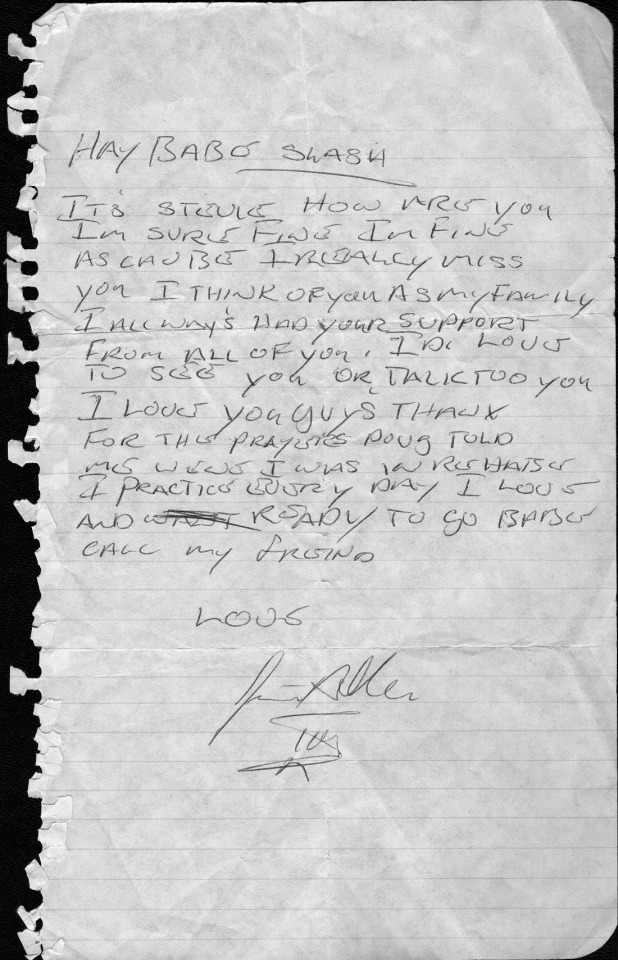 HAY BABE SLASH
ITS STEVIE HOW ARE YOU
IM SURE FINE IM FINE
AS CAN BE I REALLY MISS
YOU I THINK OF YOU AS MY FAMILY
I ALLWAYS HAD YOUR SUPPORT
FROM ALL OF YOU, I DO LOVE
TO SEE YOU OR, TALK TOO YOU
I LOVE YOU GUYS THANX
FOR THE PRAYERS DOUG TOLD
ME WENE I WAS IN REHABE
I PRACTICE EVERY DAY I LOVE
AND READY TO GO BABE
CALL MY FREIND
LOVE
Adler